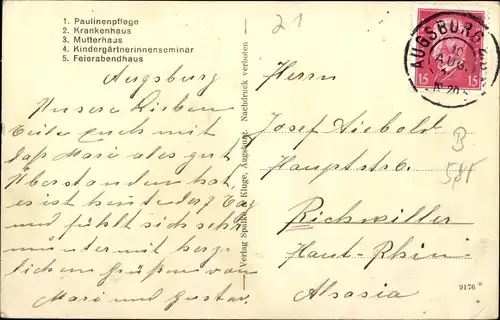 1. Paulinenpflege
2. Krankenhaus
3. Mutterhaus
4. Kindergärtnerinnenseminar
5. Feierabendhaus
21
Augsburg
Unsere Lieben
Teile Euch mit
daß Mari ales gut
überstanden hat,
es ist heute der Tag
und fühlt sich sehr
munter mit herz-
lichen Grüßen von
Mari und Gustav
Verlag Kluge, Augsburg. Nachdruck verboten
AUGSBURG
10
AUG.
15 15
Herrn
Josef Diebold
Hauptstr.
B
Richwiller
Haut-Rhin
Alsasia
9176